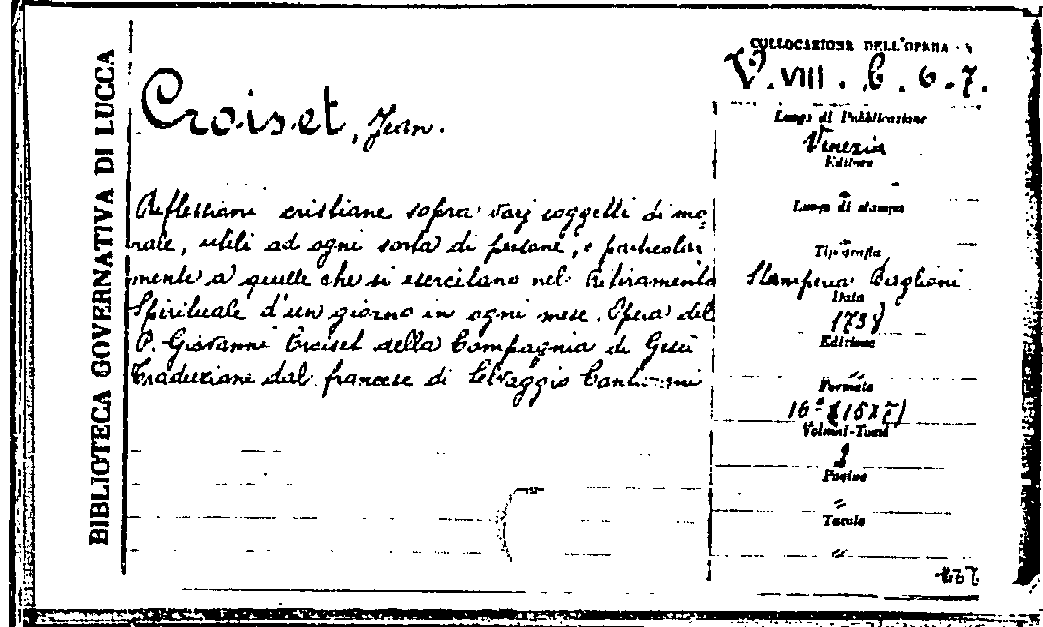 BIBLIOTECA GOVERNATIVA DI LUCCA
Croiset, Jean.
Riflessioni cristiane sopra varj soggetti di mo=
rale, utili ad ogni sorta di persone, e particolar
mente a quelle che si esercitano nel Ritiramento
Spirituale d'un giorno in ogni mese. Opera del
P. Giovanni Croiset della Compagnia di Gesù
Traduzione dal francese di Selvaggio Canturani
COLLOCAZIONE DELL'OPERA
V. VIII. b. 6-7.
Luogo di Pubblicazione
Venezia
Editore
"
Luogo di stampa
"
Tipografia
Stamperia Baglioni
Data
Edizione
"
Formato
16º (15x7)
Volumi-Tomi
2
Pagine
"
Tavole
"